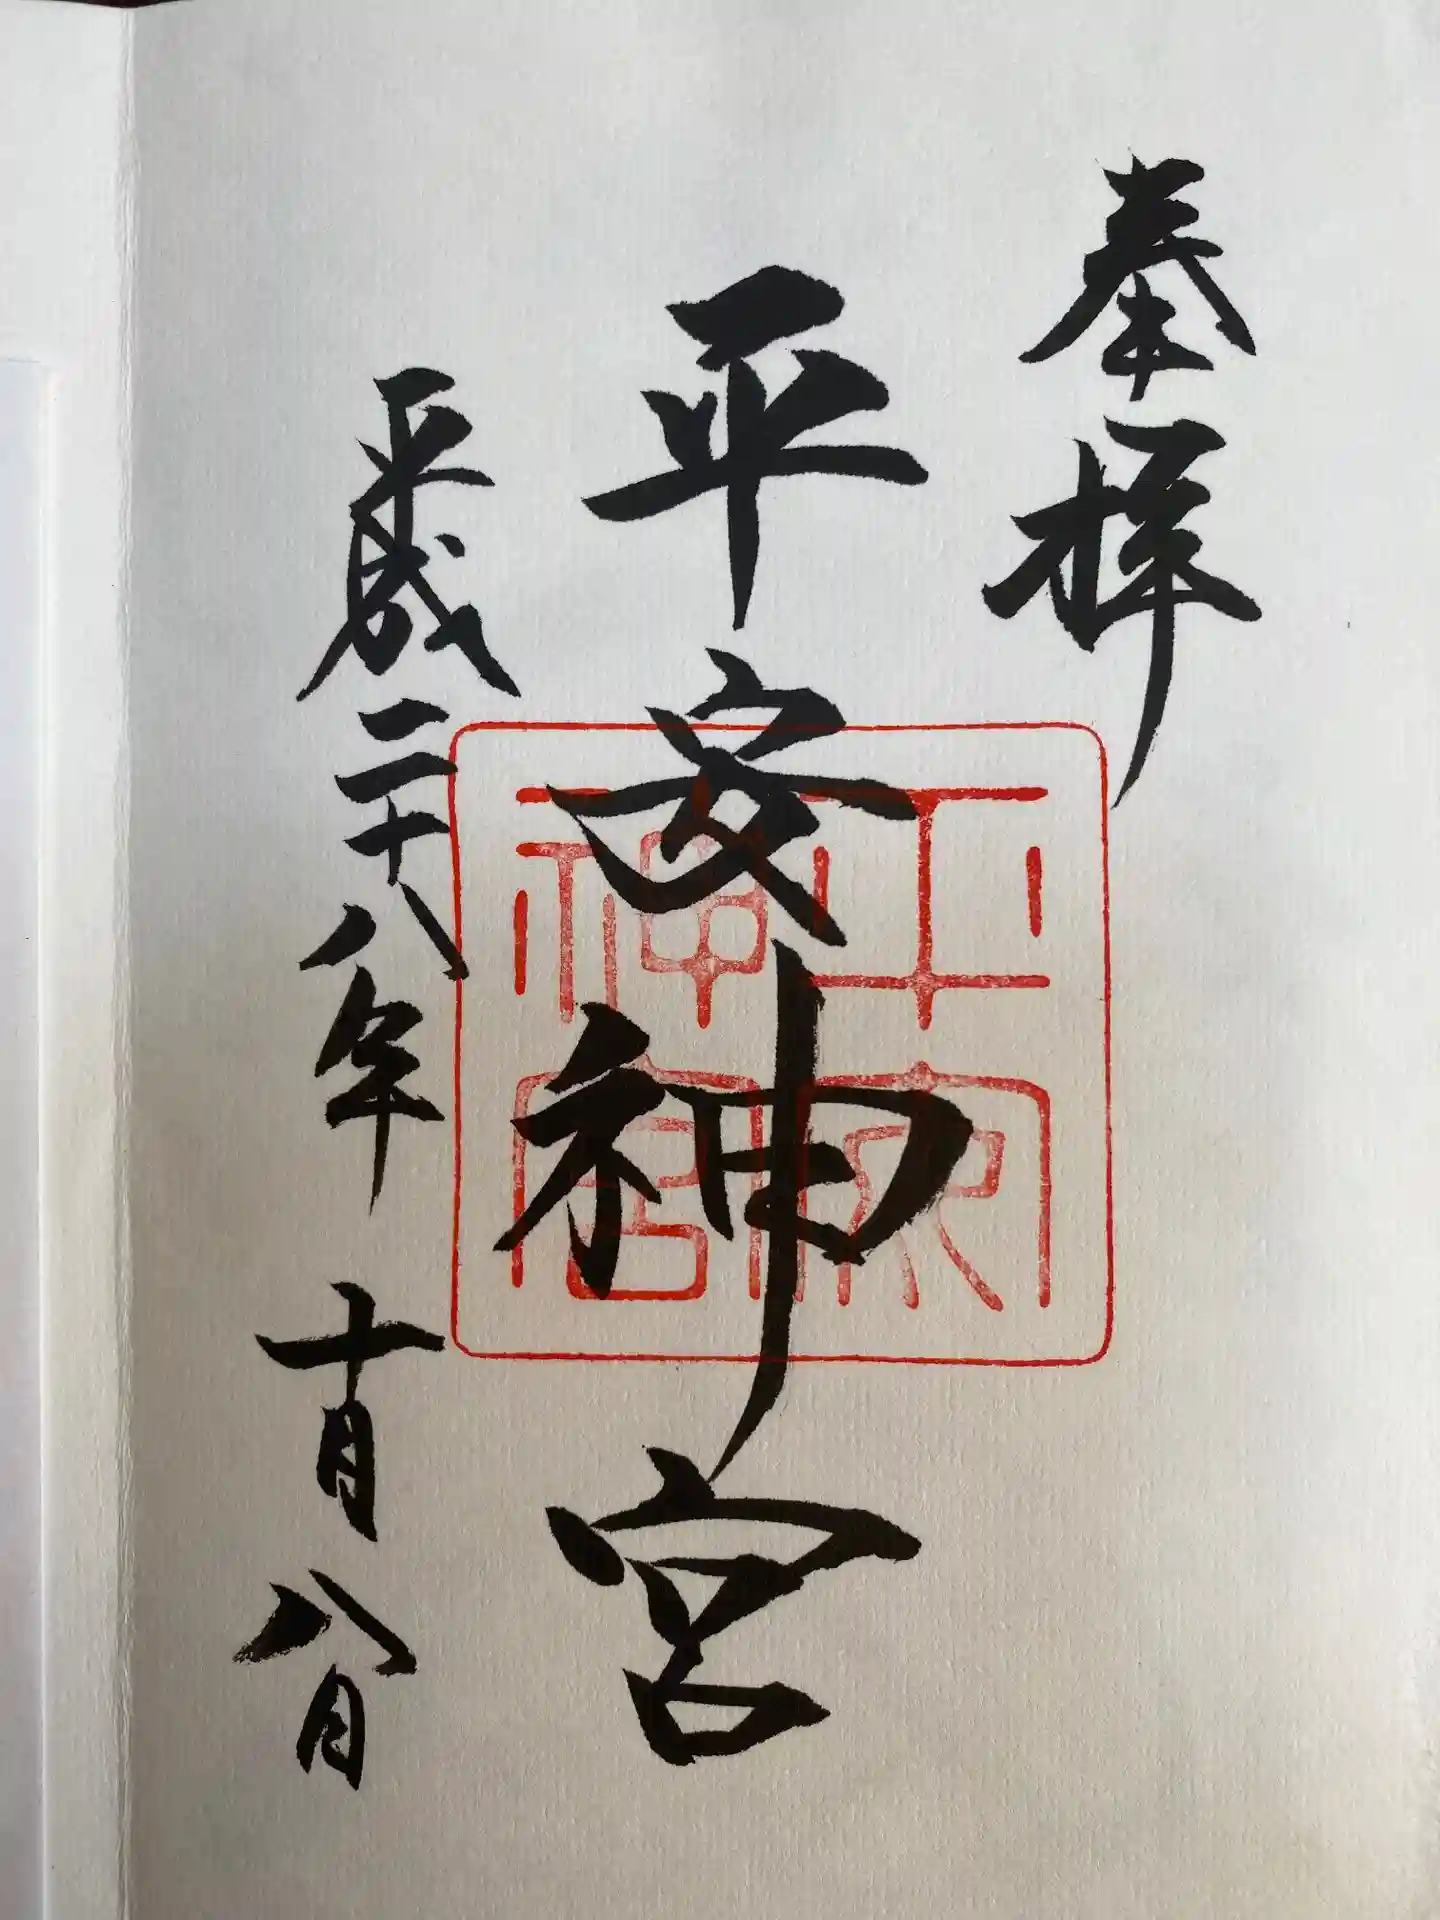 奉拝
平安神宮
平成二十八年 十月八日
平安神宮